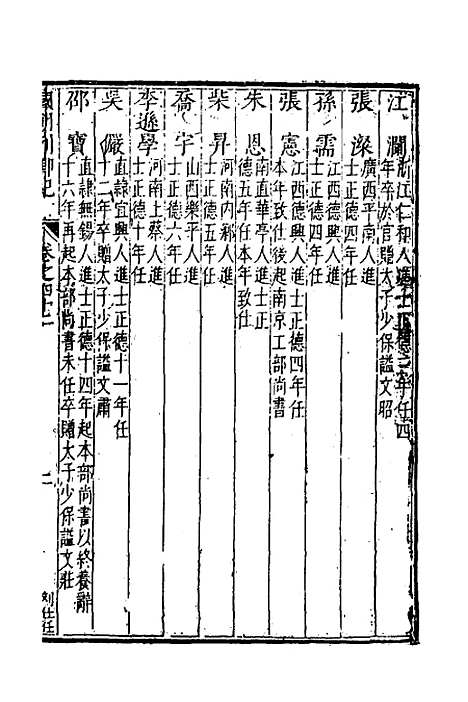 江瀾
浙江仁和人進士正德三年任四
年卒於官贈太子少保謚文昭
張濴
廣西平南人進
士正德四年任
孫需
江西德興人進
士正德四年任
張憲
江西德興人進士正德四年任
本年致仕後起南京工部尚書
朱恩
南直華亭人進士正
德五年任本年致仕
柴昇
河南内鄉人進
士正德五年任
喬宇
山西樂平人進
士正德六年任
李遜學
河南上蔡人進
士正德十年任
吳儼
直隷宜興人進士正德十一年任
十二年卒贈太子少保謚文肅
邵寶
直隷無錫人進士正德十四年起本部尚書以終養辭
十六年再起本部尚書未任卒贈太子少保謚文莊
國朝列卿紀
卷之四十二
二
刘仕任